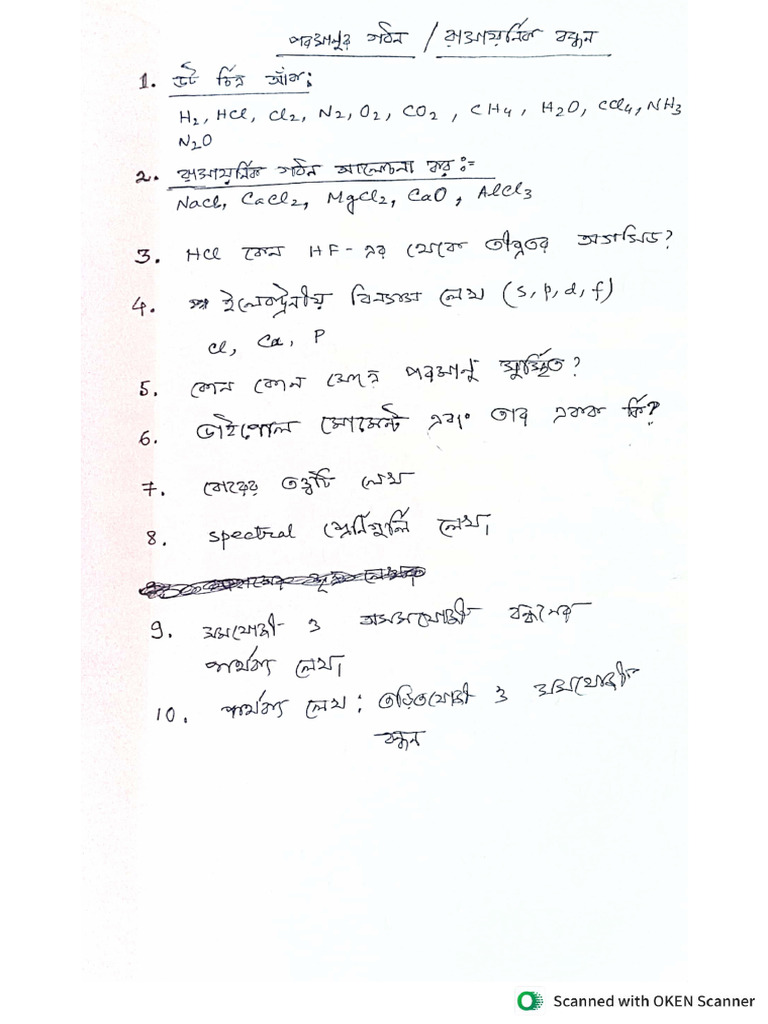 পরমানুর গঠন / রাসায়নিক বন্ধন
1. ডট চিত্র আঁক:
H2, HCl, Cl2, N2, O2, CO2, CH4, H2O, CCl4, NH3
N2O
2. রাসায়নিক গঠন আলোচনা কর:-
NaCl, CaCl2, MgCl2, CaO, AlCl3
3. HCl কেন HF-এর থেকে তীব্রতর অ্যাসিড?
4. ইলেকট্রনীয় বিন্যাস লেখ (s, p, d, f)
Cl, Ca, P
5. কোন কোন ক্ষেত্রে পরমানু সুস্থিত?
6. ডাইপোল মোমেন্ট এবং তার একক কি?
7. বোরের তত্ত্বটি লেখ
8. spectral শ্রেনিগুলি লেখ।
9. সমযোজী ও অসমযোজী বন্ধনের
পার্থক্য লেখ।
10. পার্থক্য লেখ: তড়িতযোজী ও সমযোজী
বন্ধন
Scanned with OKEN Scanner